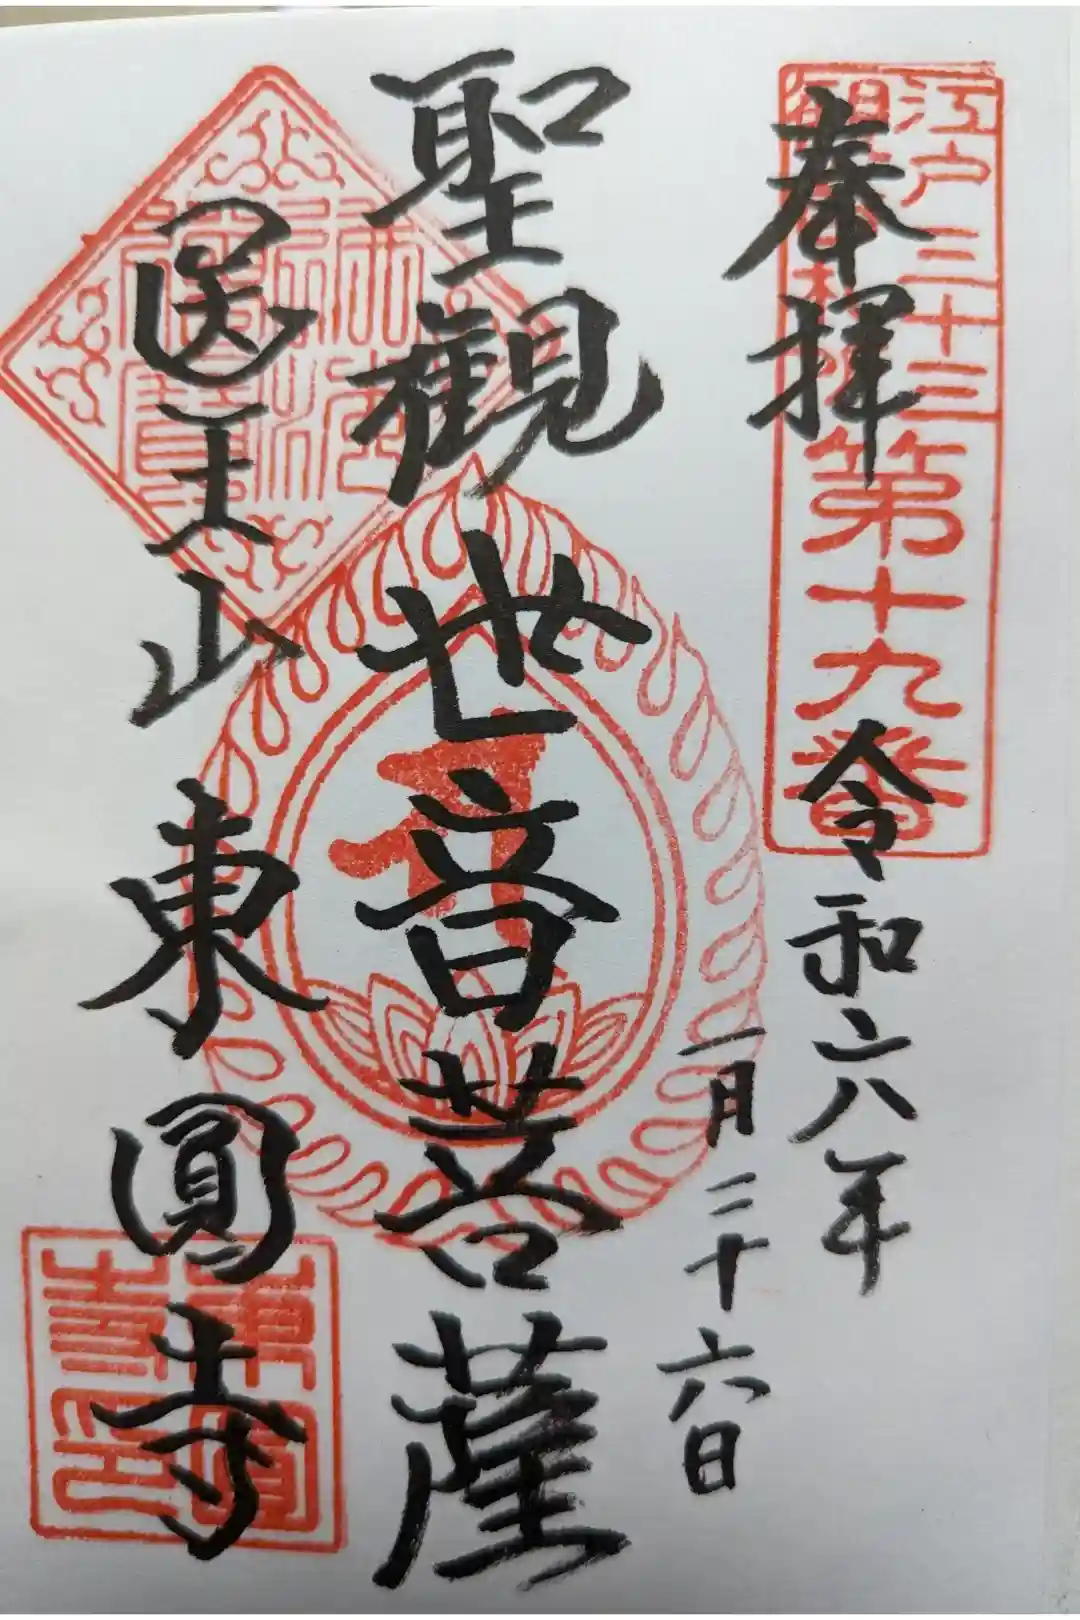 奉拝
江戸三十三
観音札所
第十九番
令和六年
一月二十六日
聖観世音菩薩
医王山
東圓寺